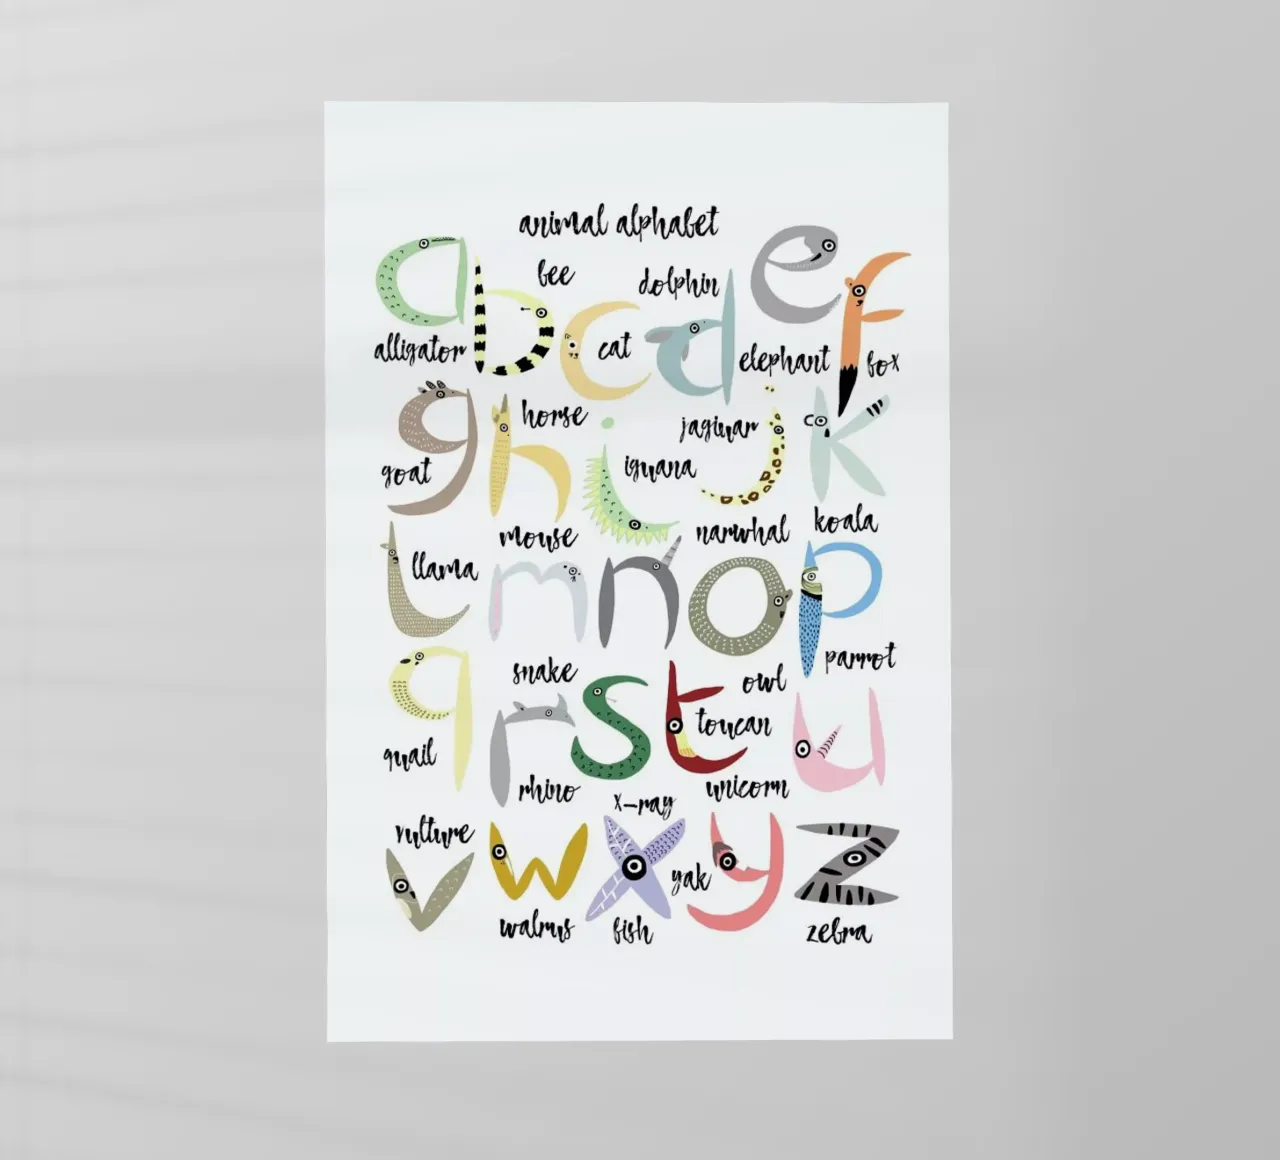 animal alphabet
a
alligator
b
bee
c
cat
d
dolphin
e
elephant
f
fox
g
goat
h
horse
i
iguana
j
jaguar
k
koala
l
llama
m
mouse
n
narwhal
o
owl
p
parrot
q
quail
r
rhino
s
snake
t
toucan
u
unicorn
v
vulture
w
walrus
x
x-ray
fish
y
yak
z
zebra